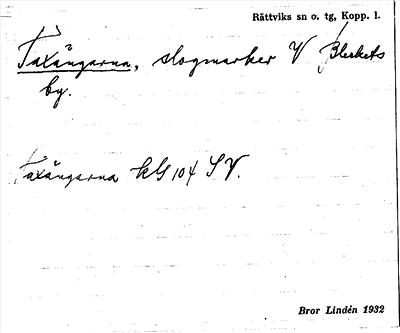 Rättviks sn o. tg, Kopp. l.
Taxängarna, slogmarker V Bleckets
by.
Taxängarna kls 104 S V.
Bror Lindén 1932